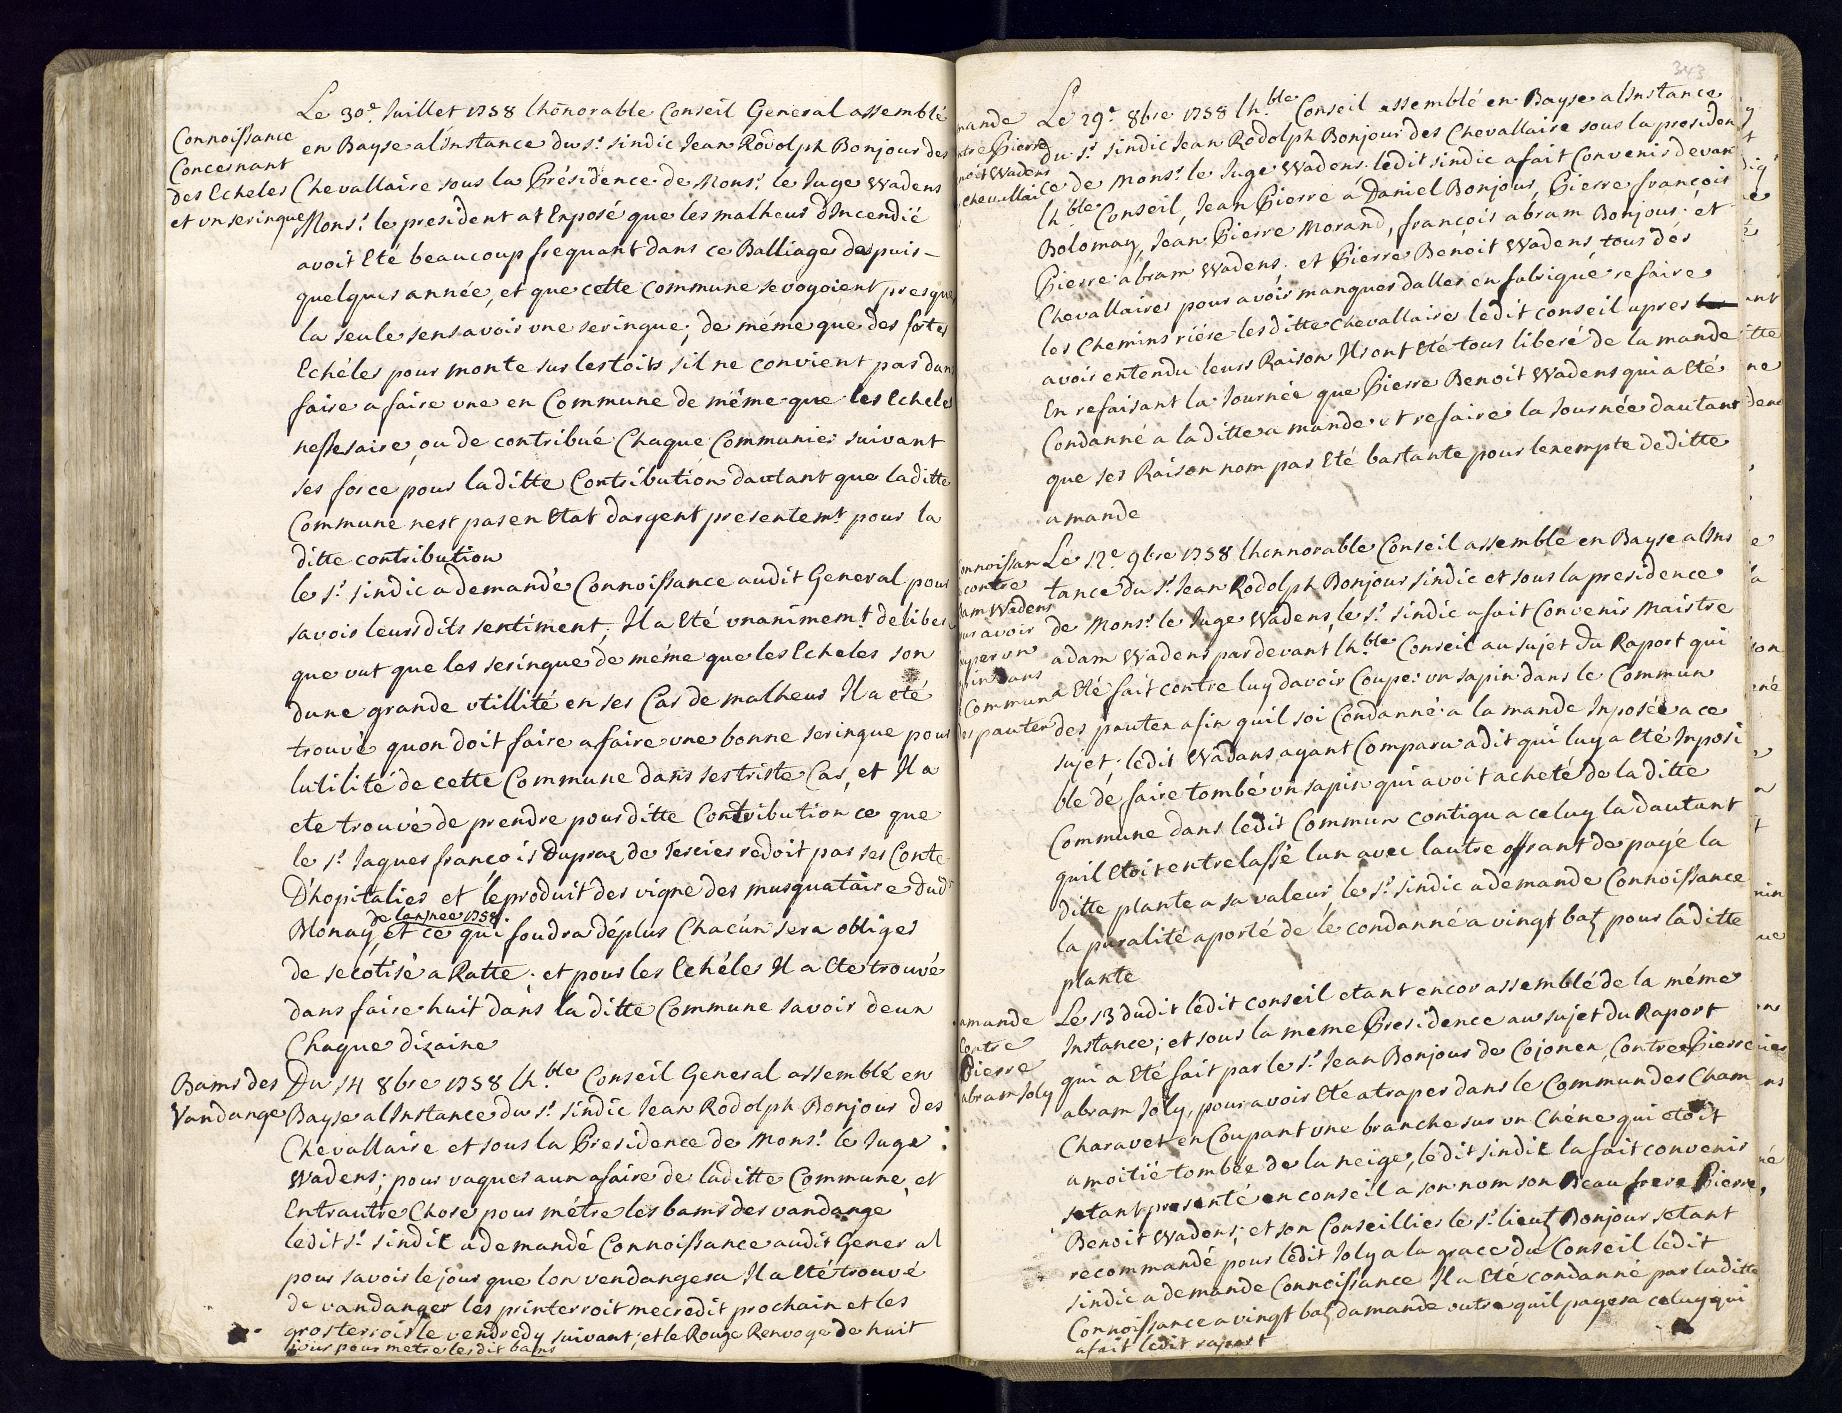 Le 30e Juillet 1758 lhonorable Conseil General assemblé
Connoissance
Concernant
des Echeles
et un seringue
en Bayse alinstance du sr. sindic Jean Rodolph Bonjour des
Chevallaire sous la Présidence de Monsr. le Juge Wadens
Monsr. le president at Exposé que les malheur d'Incendié
avoit Eté beaucoup frequant dans ce Balliage despuis
quelques année, et que cette Commune se voyoient presque
la seule sens avoir une seringue, de méme que des fortes
Echéles pour monte sur les toits sil ne convient pas dans
faire a faire une en Commune de même que les Echeles
nessesaire, ou de contribué Chaque Communier suivant
ses force pour laditte Contribution dautant que laditte
Commune nest pas en Etat dargent presentemt. pour la
ditte contribution
le sr. sindic a demandé Connoissance audit General pour
savoir leursdits sentiment, Il a Eté unanimemt. delibere
que vut que les seringue de méme que les Echeles son
dune grande utillité en ses Cas de malheur Il a eté
trouvé quon doit faire a faire une bonne seringue pour
lutilité de cette Commune dans ses triste Cas, et Il a
ete trouvé de prendre pour ditte Contribution ce que
le sr. Jaques francois Dupraz de Tercier redoit par ses Conte
D'hopitalier et le produit des vigne des musquataire dud
de lannee 1758.
Monay, et ce qui foudra déplus Chacun sera obliger
de se cotisé a Ratte, et pour les Echéles Il a Ete trouvé
dans faire huit dans la ditte Commune savoir de un
Chaque dizaine
Bams des
Vandange
Du 14 8bre 1758 lh.ble Conseil General assemblé en
Bayse alinstance du sr. sindic Jean Rodolph Bonjour des
Chevallaire et sous la Presidence de Monsr. le Juge
Wadens; pour vaquer aux afaire de laditte Commune, et
Entrautre Chose pour métre les bams des vandange
ledit sr. sindic a demandé Connoissance audit General
pour savoir le jour que lon vendangera Il a Eté trouvé
de vandanger les printerroit mecredit prochain et les
gros terroir le vendredy suivant, et le Rouge Renvoye de huit
jour pour metre les dit bams
343
mande
ntre Pierre
noit Wadens
chevallai
Le 29e 8bre 1758 lh.ble Conseil assemblé en Bayse alinstance
du sr. sindic Jean Rodolph Bonjour des Chevallaire sous la presiden
ce de Monsr. le Juge Wadens. ledit sindic a fait Convenir devan
lh.ble Conseil, Jean Pierre á Daniel Bonjour, Pierre françois
Bolomay, Jean Pierre Morand, françois abram Bonjour, et
Pierre abram Wadens, et Pierre Benoit Wadens tous des
Chevallaires pour avoir manquer daller en fabriqué refaire
les Chemins riére les ditte chevallaire ledit conseil apres
avoir entendu leurs Raison Ils ont Eté tous liberé de la mande
En refaisant la Journée que Pierre Benoit Wadens qui a Eté
Condanné a la ditte a mande et refaire la Journée dautant
que ses Raison nom pas Eté bastante pour lexempte de ditte
amande
onnoissan
contre
am Wadens
our avoir
uper un
pin dans
Commun
es pauter
Le 12e 9bre 1758 lhonnorable Conseil assemblé en Bayse alins
tance du sr. Jean Rodolph Bonjour sindic et sous la presidence
de Monsr. le Juge Wadens, le sr. sindic a fait Convenir Maistre
adam Wadens par devant lh.ble Conseil au sujet du Raport qui
a Eté fait contre luy davoir Coupe: un sapin dans le Commun
des pauter afin quil soi Condanné a la mande Inposée a ce
sujet. ledit Wadans ayant Comparu a dit qui luy a Eté Inposi
ble dé faire tombé un sapin qui avoit acheté de la ditte
Commune dans ledit Commun contigu a celuy la dautant
quil Etoit entrelassé lun avec lautre offrant de payé la
ditte plante a sa valeur, le sr. sindic a demande Connoissance
la puralité a porté de le condanné a vingt batz pour la ditte
plante
amande
Contre
Pierre
abram Joly
Le 13 dudit ledit conseil etant encor assemblé de la méme
Instance, et sous la meme Presidence au sujet du Raport
qui a Eté fait par le sr. Jean Bonjour de Cojonex, Contre Pierre
abram Joly, pour avoir Eté atraper dans le Commun des Cham
Charavet en Coupant une branche sur un Chéne qui etoit
a moitié tombée de la neige, ledit sindic la fait convenir
setant presenté en conseil a son nom son Beau frere Pierre
Benoit Wadens; et son Conseillier le sr. lieut. Bonjour setant
recommandé pour ledit Joly a la grace du Conseil ledit
sindic a demande Connoissance Il a Eté condanné par laditte
Connoissance a vingt batz damande outre quil payera celuy qui
a fait ledit raport